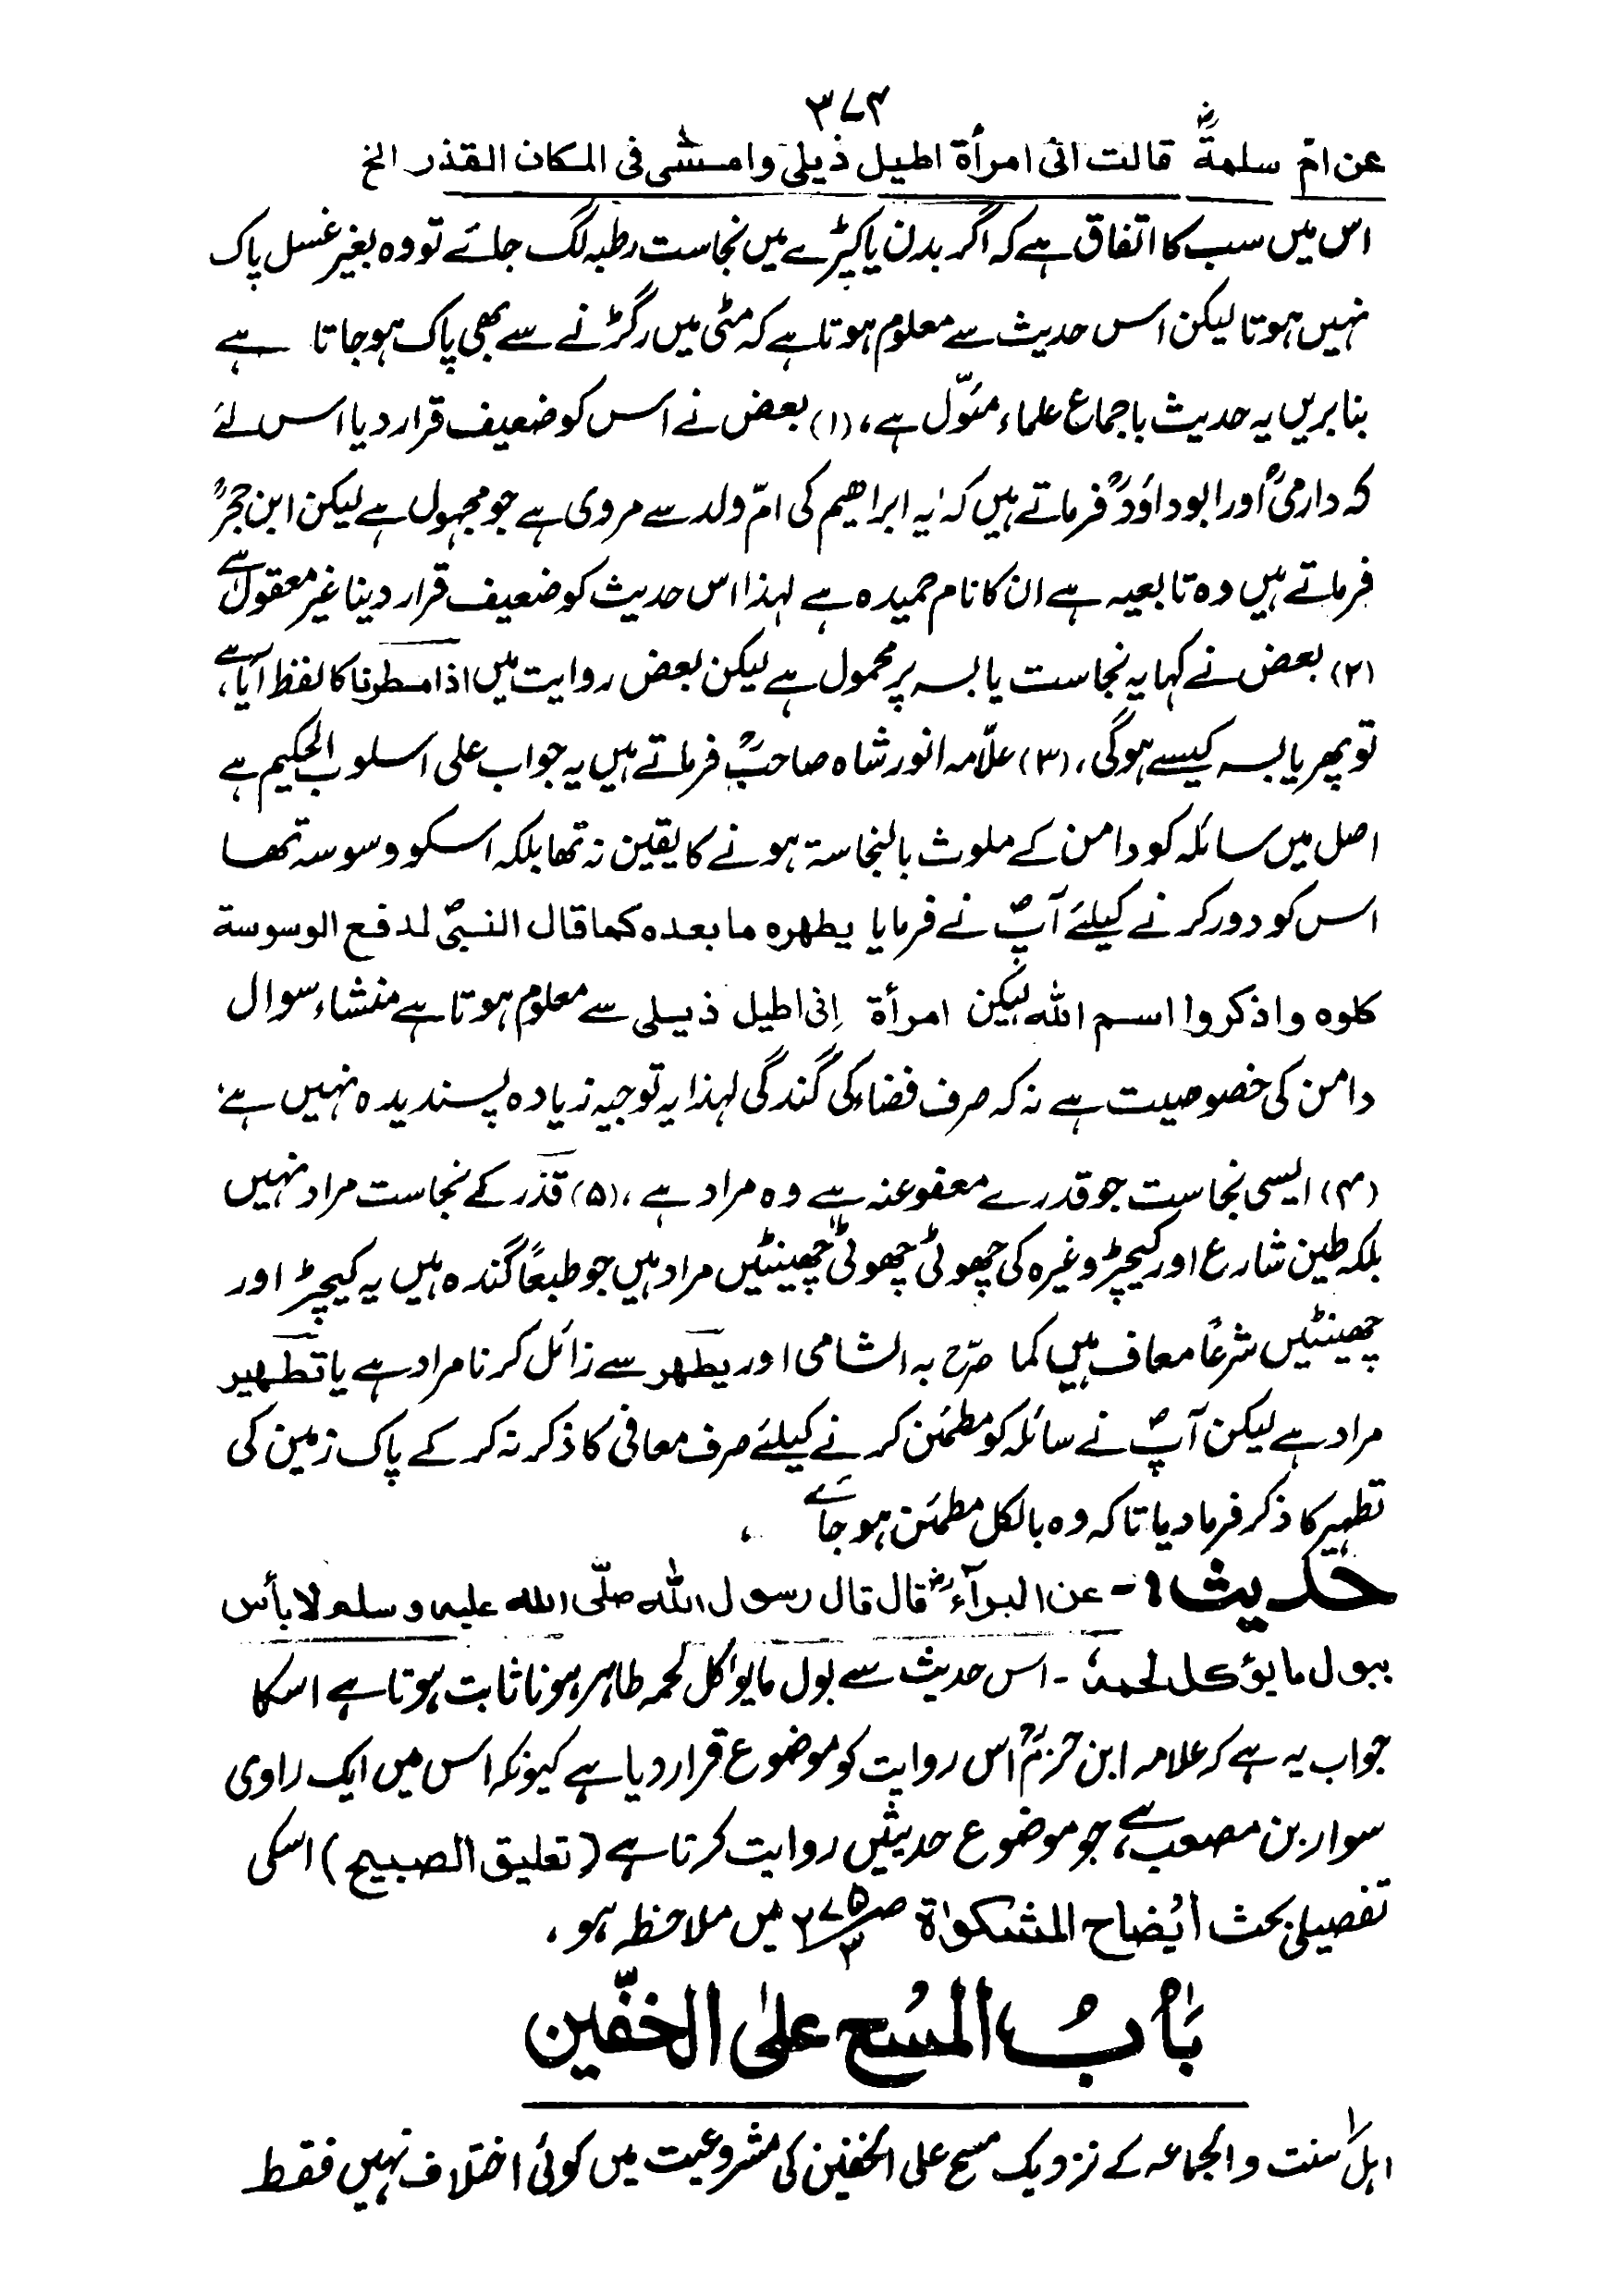 ۳۷۴
عن امّ سلمةؓ قالت انی امرأة اطیل ذیلی وامشی فی المکان القذر الخ
اس میں سب کا اتفاق ہے کہ اگر بدن یا کپڑے میں نجاست رطبہ لگ جائے تو وہ بغیر غسل پاک
نہیں ہوتا لیکن اس حدیث سے معلوم ہوتا ہے کہ مٹی میں رگڑنے سے بھی پاک ہوجاتا ہے
بنابریں یہ حدیث باجماع علماء مئوّل ہے، (۱) بعض نے اس کو ضعیف قرار دیا اس لئے
کہ دارمیؒ اور ابوداؤدؒ فرماتے ہیں کہ یہ ابراھیم کی امّ ولد سے مروی ہے جو مجہول ہے لیکن ابن حجرؒ
فرماتے ہیں وہ تابعیہ ہے ان کا نام حمیدہ ہے لہذا اس حدیث کو ضعیف قرار دینا غیر معقول ہے
(۲) بعض نے کہا یہ نجاست یابسہ پر محمول ہے لیکن بعض روایت میں اذا مطرنا کا لفظ آیا ہے،
تو پھر یابسہ کیسے ہوگی، (۳) علّامہ انور شاہ صاحبؒ فرماتے ہیں یہ جواب علی اسلوب الحکیم ہے
اصل میں سائلہ کو دامن کے ملوث بالنجاسة ہونے کا یقین نہ تھا بلکہ اسکو وسوسہ تھا
اس کو دور کرنے کیلئے آپؐ نے فرمایا یطهره ما بعده کما قال النبیؐ لدفع الوسوسة
کلوه واذکروا اسم الله لیکن امرأة اِنی اطیل ذیلی سے معلوم ہوتا ہے منشاء سوال
دامن کی خصوصیت ہے نہ کہ صرف فضاء کی گندگی لہذا یہ توجیہ زیادہ پسندیدہ نہیں ہے،
(۴) ایسی نجاست جو قدرے معفو عنہ ہے وہ مراد ہے، (۵) قذر کے نجاست مراد نہیں
بلکہ طین شارع اور کیچڑ وغیرہ کی چھوٹی چھوٹی چھینٹیں مراد ہیں جو طبعاً گندہ ہیں یہ کیچڑ اور
چھینٹیں شرعاً معاف ہیں کما صرّح به الشامی اور یطهر سے زائل کرنا مراد ہے یا تطهیر
مراد ہے لیکن آپؐ نے سائلہ کو مطمئن کرنے کیلئے صرف معافی کا ذکر نہ کر کے پاک زمین کی
تطہیر کا ذکر فرما دیا تاکہ وہ بالکل مطمئن ہو جائے ،
حَدیث :- عن البرآءؓ قال قال رسول الله صلّی الله علیه وسلم لا بأس
ببول ما یؤکل لحمهٗ ۔ اس حدیث سے بول مایوٴکل لحمہ طاہر ہونا ثابت ہوتا ہے اسکا
جواب یہ ہے کہ علامہ ابن حزمؒ اس روایت کو موضوع قرار دیا ہے کیونکہ اس میں ایک راوی
سوار بن مصعب ہے، جو موضوع حدیثیں روایت کرتا ہے (تعلیق الصبیح) اسکی
تفصیلی بحث اَیْضاح المشکوٰة ص۲۷۵/۳ میں ملاحظہ ہو ،
بَابُ الْمَسْحِ عَلٰی الخفّین
اہل سنت والجماعہ کے نزدیک مسح علی الخفین کی مشروعیت میں کوئی اختلاف نہیں فقط